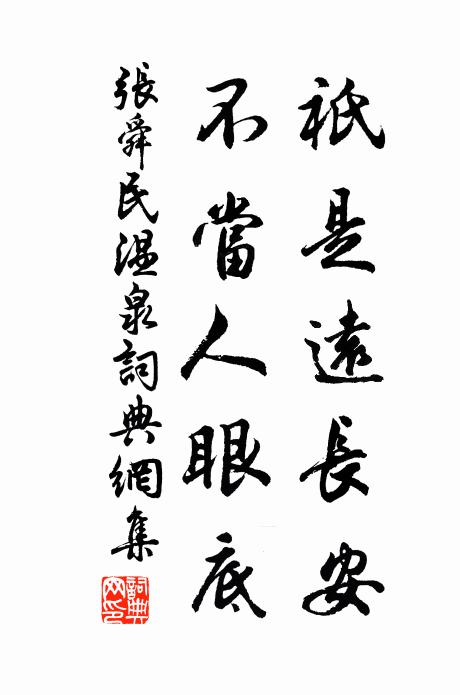 祇是遠長安
不當人眼底
張舜民温泉詞典網集
詞典網印